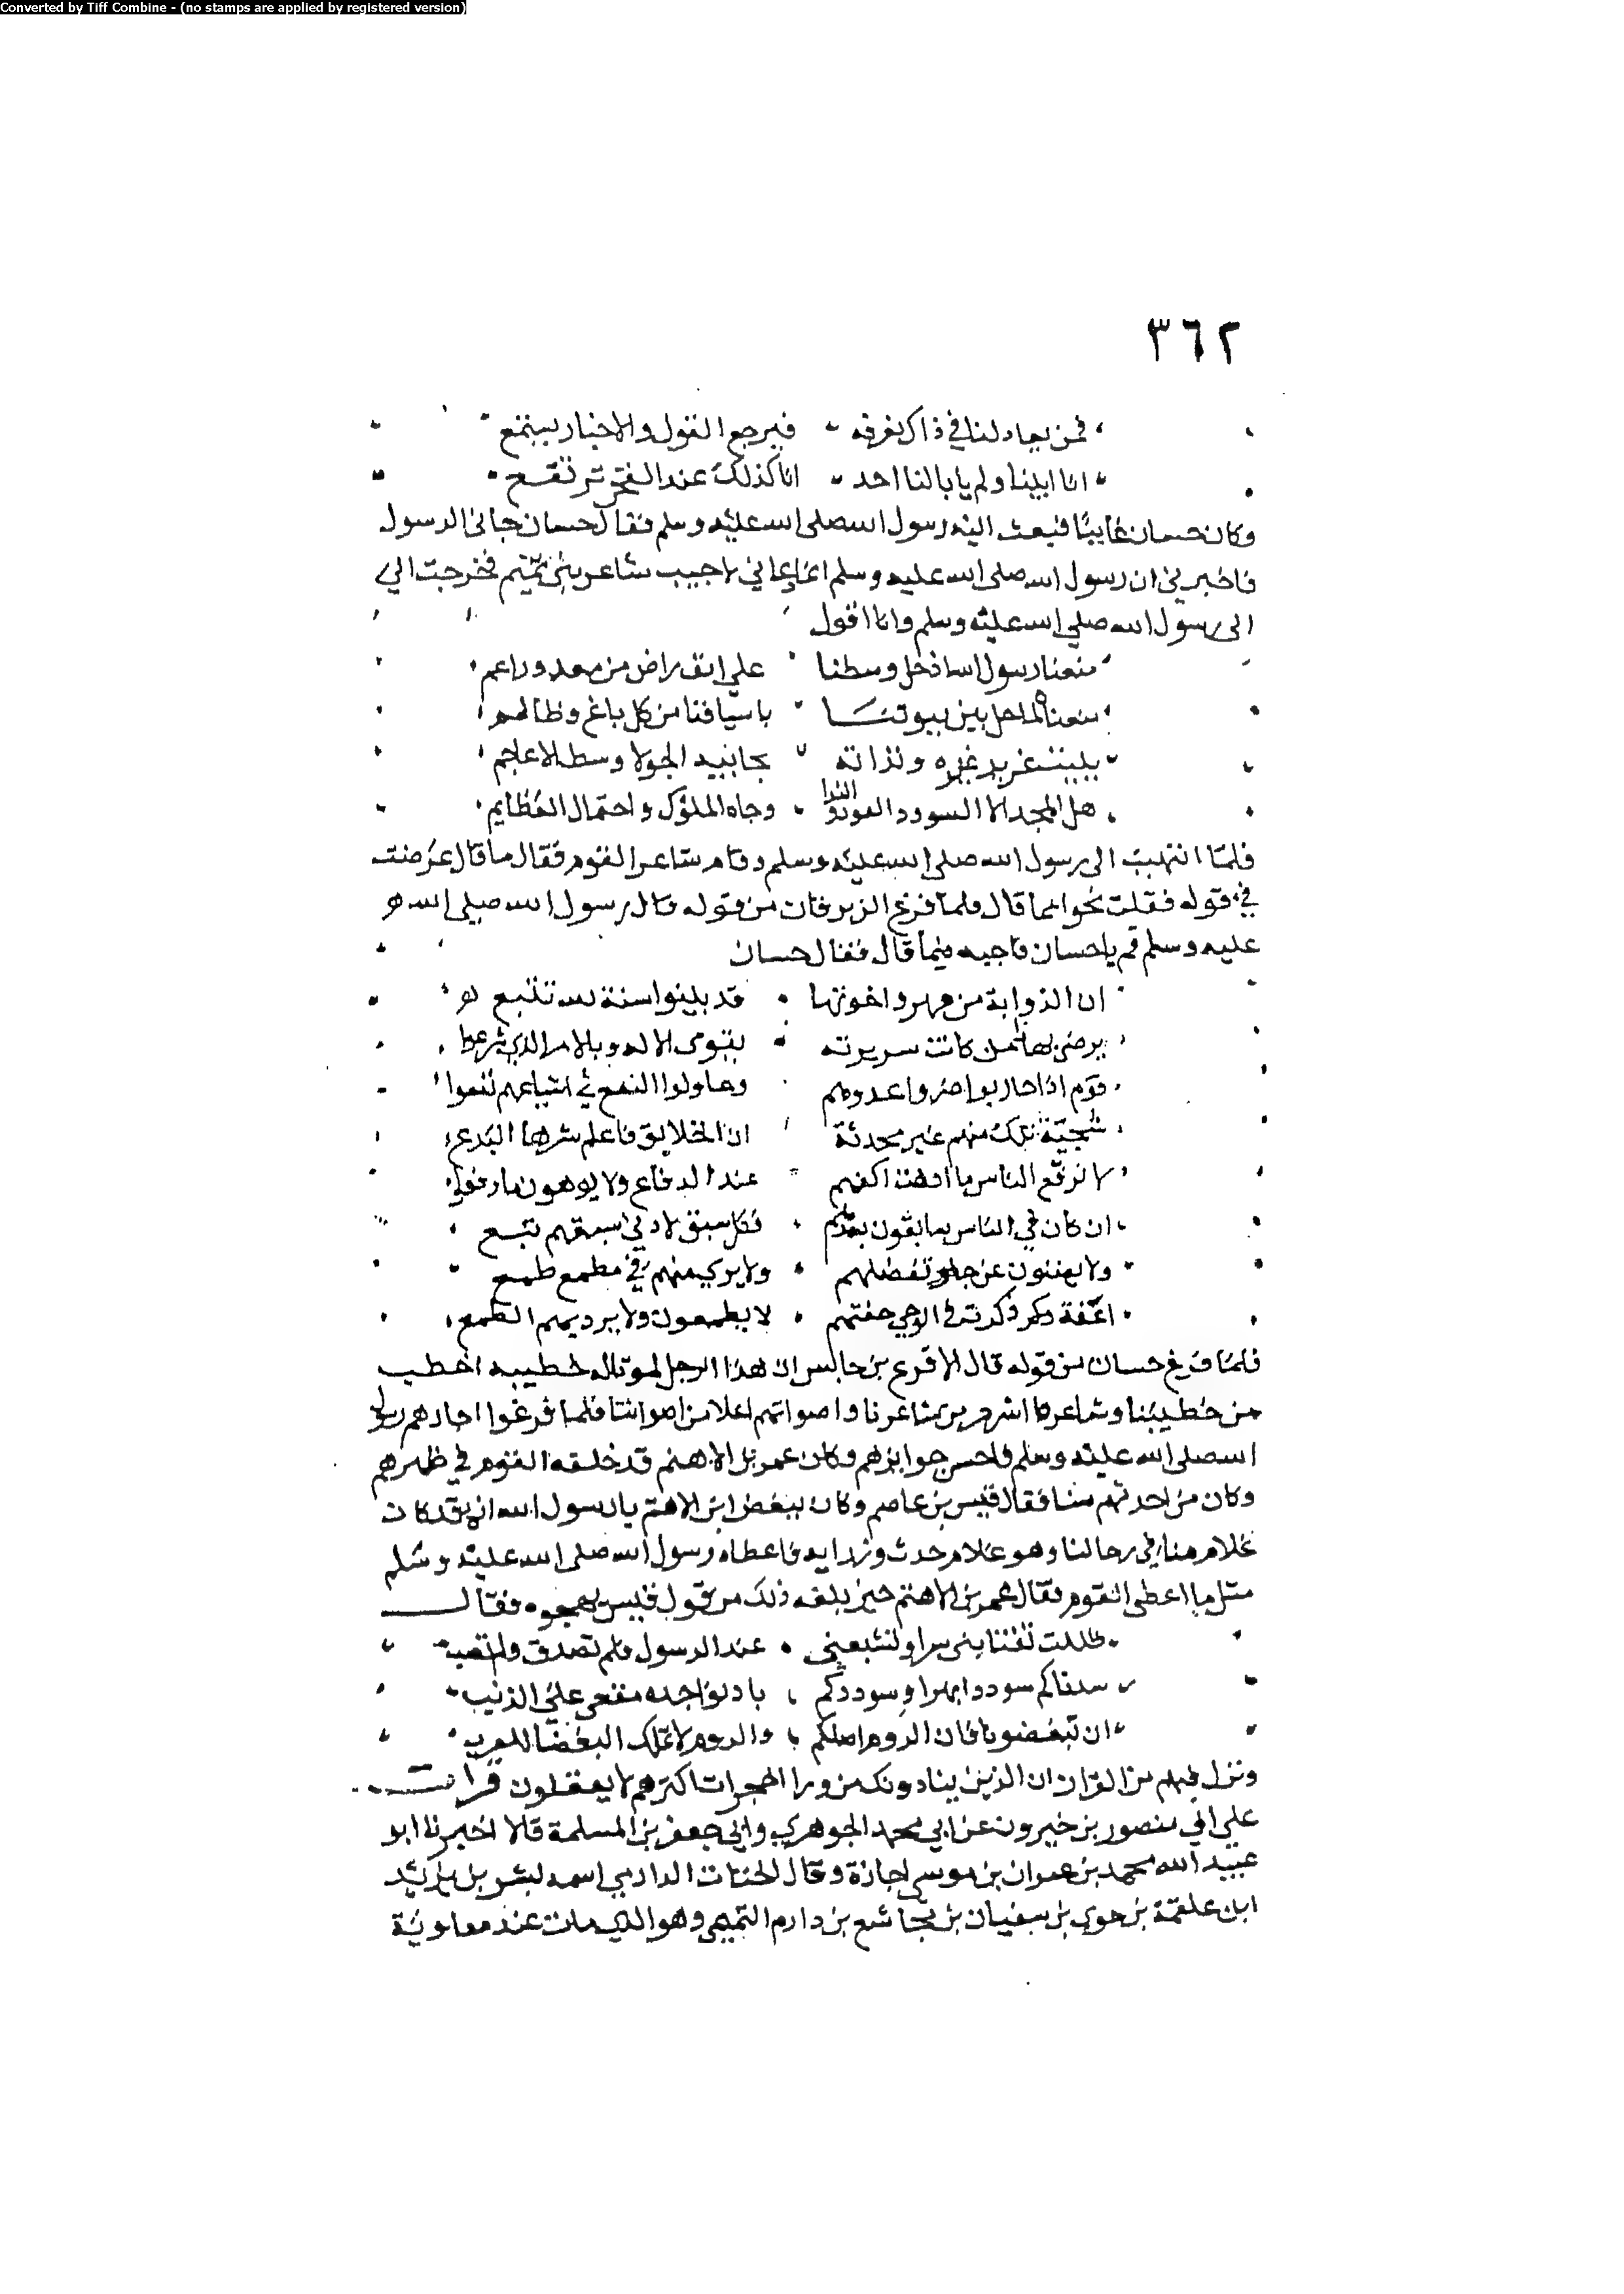 Converted by Tiff Combine - (no stamps are applied by registered version)
٣٦٢
فمن يعادلنا في ذاك نعرفه فيرجع القول والاخبار يستمع
انا ابينا ولم يابا لنا احد انا كذلك عند الفخر نرتفع
وكان حسان غايبا فبعث اليه رسول الله صلى الله عليه وسلم فقال حسان جانى الرسول
فاخبرني ان رسول الله صلى الله عليه وسلم انما دعاني لاجيب شاعر بني تميم فخرجت الي
الى رسول الله صلي الله عليه وسلم وانا اقول
منعنا رسول الله اذ حل وسطنا علي انف راض من معد وراغم
منعناه لما حل بين بيوتنا باسيافنا من كل باغ وظالم
ببيت غريد عزه وثراته بجابيه الجولا وسط الاعاجم
هل المجد الا السودد العود والندا وجاه الملوك واحتمال العظايم
فلما انتهيت الى رسول الله صلى الله عليه وسلم وقام شاعر القوم فقال ما قال عرضت
في قوله فقلت نحوا مما قال فلما فرغ الزبرقان من قوله قال رسول الله صلى الله
عليه وسلم قم يا حسان فاجبه فيما قال فقال حسان
ان الذوايبة من فهر واخوتها قد بينوا سنة لله تتبع
يرضى بها كل من كانت سريرته بتقوى الاله وبالامر الذي شرعوا
قوم اذا حاربوا ضروا عدوهم وحاولوا النفع في اشياعهم نفعوا
سجية تلك منهم غير محدثة ان الخلايق فاعلم شرها البدع
لا نرقع الناس ما اوهت اكفهم عند الدفاع ولا يوهون ما رقعوا
ان كان في الناس سابقون بعدهم فكل سبق لادني سبقهم تبع
ولا يضنون عن جار تفضلهم ولا يري منهم في مطمع طمع
اعفة ذكرت في الوحي عفتهم لا يطمعون ولا يرديهم الطمع
فلما فرغ حسان من قوله قال الاقرع بن حابس ان هذا الرجل لموتا له خطيبه اخطب
من خطيبنا وشاعره اشعر من شاعرنا واصواتهم اعلا من اصواتنا فلما فرغوا اجازهم رسول
الله صلى الله عليه وسلم فاحسن جوايزهم وكان عمر بن الاهتم قد خلفه القوم في ظهرهم
وكان من احدثهم سنا فقال قيس بن عاصم وكان يبغض ابن الاهتم يا رسول الله انه قد كان
غلام منا في رحالنا وهو غلام حدث وزرا به فاعطاه رسول الله صلى الله عليه وسلم
مثل ما اعطى القوم فقال عمر بن الاهتم حين بلغه ذلك من قول قيس يهجوه فقال
ظللت تغتابني سرا وتشبعني عند الرسول فلم تصدق ولم تصب
سدناكم سوددا بهرا وسوددكم باد نواجده مقعى على الذنب
ان تبغضونا فان الروم اصلكم والروم لا تملك البغضا للعرب
ونزل فيهم من القران ان الذين ينادونك من ورا الحجرات اكثرهم لا يعقلون قرات
علي ابي منصور بن خيرون عن ابي محمد الجوهري وابي جعفر بن المسلمة قالا اخبرنا ابو
عبيد الله محمد بن عمران بن موسى اجازة وقال الحتات الدارمي اسمه بشر بن يزيد
ابن علقمة بن حوي بن سفيان بن مجاشع بن دارم التميمي وهو الذي مات عند معاوية